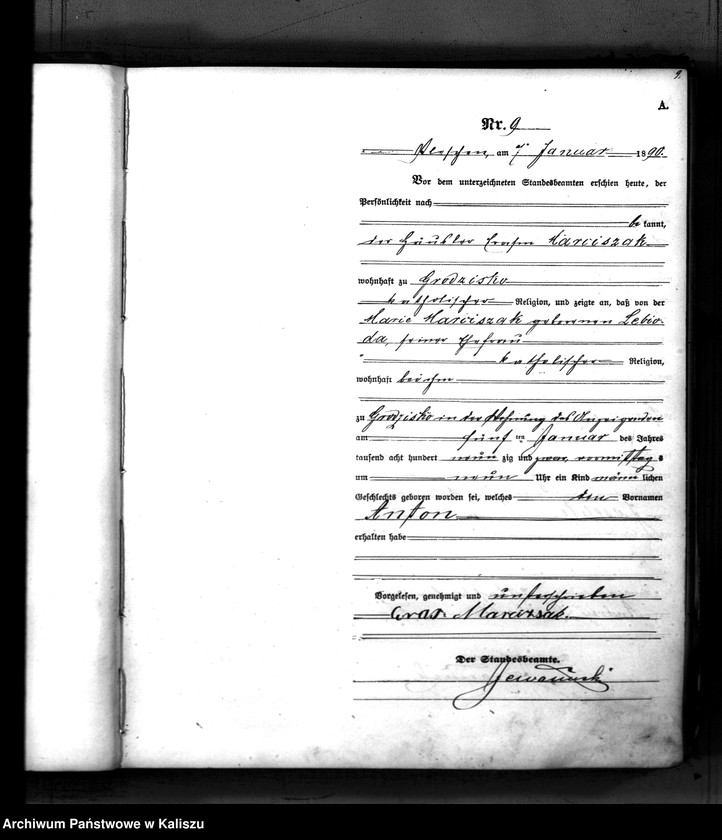 9.
A.
Nr. 9
Pleschen, am 7ten Januar 1890.
Vor dem unterzeichneten Standesbeamten erschien heute, der
Persönlichkeit nach
bekannt,
der Häusler Marciszak
wohnhaft zu Grodzisko
katholischer Religion, und zeigte an, daß von der
Marie Marciszak geborenen Lebio-
da, seiner Ehefrau
katholischer Religion,
wohnhaft bei ihm
zu Grodzisko in der Wohnung des Anzeigenden
am fünften Januar des Jahres
tausend acht hundert neunzig und zwar vormittags
um neun Uhr ein Kind männlichen
Geschlechts geboren worden sei, welches den Vornamen
Anton
erhalten habe
Vorgelesen, genehmigt und unterschrieben
Der Standesbeamte.
Archiwum Państwowe w Kaliszu